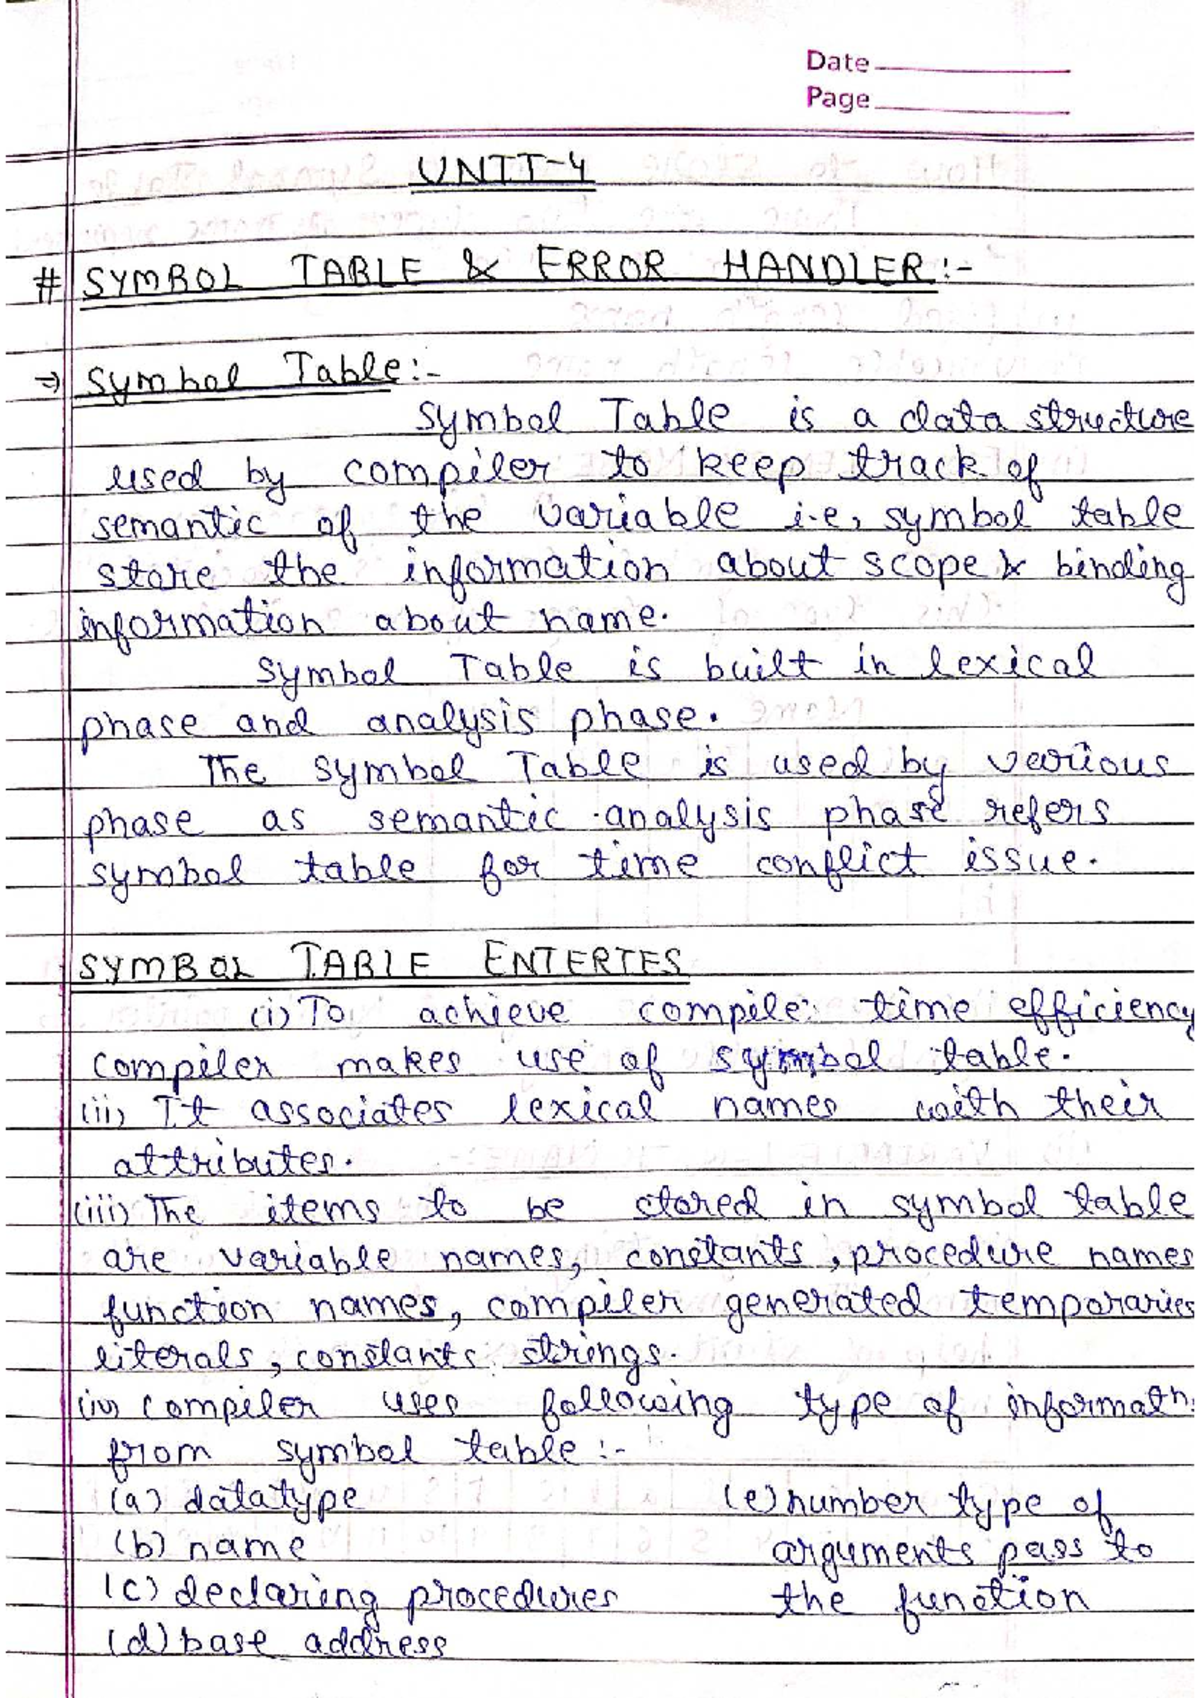 Date
Page
UNIT-4
# SYMBOL TABLE & ERROR HANDLER:-
⇒ Symbol Table:-
Symbol Table is a data structure
used by compiler to keep track of
semantic of the variable i.e, symbol table
store the information about scope & binding
information about name.
Symbol Table is built in lexical
phase and analysis phase.
The symbol Table is used by various
phase as semantic analysis phase refers
symbol table for time conflict issue.
SYMBOL TABLE ENTERIES
(i) To achieve compile: time efficiency
compiler makes use of symbol table.
(ii) It associates lexical names with their
attributes.
(iii) The items to be stored in symbol table
are variable names, constants, procedure names
function names, compiler generated temporaries
literals, constants strings.
(iv) compiler uses following type of informatn.
from symbol table :-
(a) datatype
(b) name
(c) declaring procedures
(d) base address
(e) number type of
arguments pass to
the function